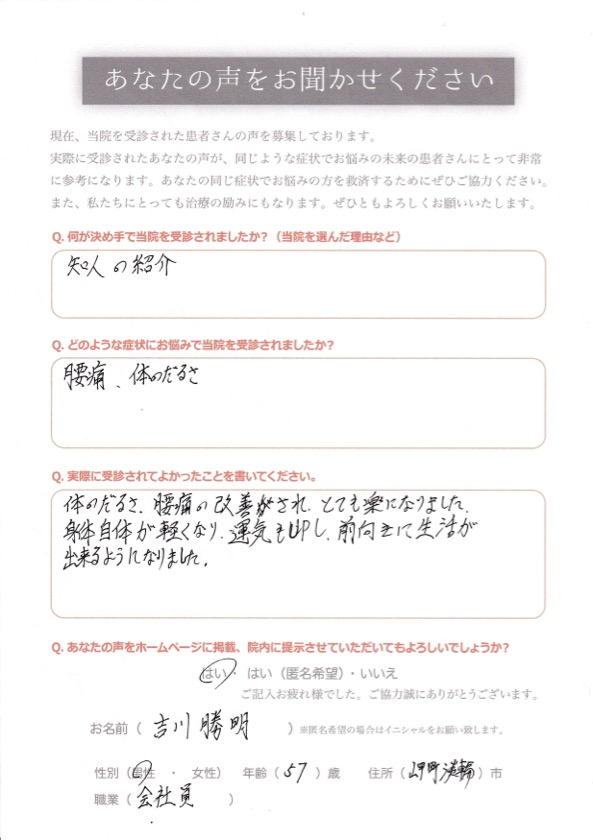 あなたの声をお聞かせください
現在、当院を受診された患者さんの声を募集しております。
実際に受診されたあなたの声が、同じような症状でお悩みの未来の患者さんにとって非常
に参考になります。あなたの同じ症状でお悩みの方を救済するためにぜひご協力ください。
また、私たちにとっても治療の励みにもなります。ぜひともよろしくお願いいたします。
Q. 何が決め手で当院を受診されましたか？（当院を選んだ理由など）
知人の紹介
Q. どのような症状にお悩みで当院を受診されましたか？
腰痛、体のだるさ
Q. 実際に受診されてよかったことを書いてください。
体のだるさ、腰痛の改善がされ、とても楽になりました。
身体自体が軽くなり、運気もUPし、前向きに生活が
出来るようになりました。
Q. あなたの声をホームページに掲載、院内に提示させていただいてもよろしいでしょうか？
はい・はい（匿名希望）・いいえ
ご記入お疲れ様でした。ご協力誠にありがとうございます。
お名前（吉川勝明）※匿名希望の場合はイニシャルをお願い致します。
性別（男性・女性） 年齢（57）歳 住所（岬町淡輪）市
職業（会社員）